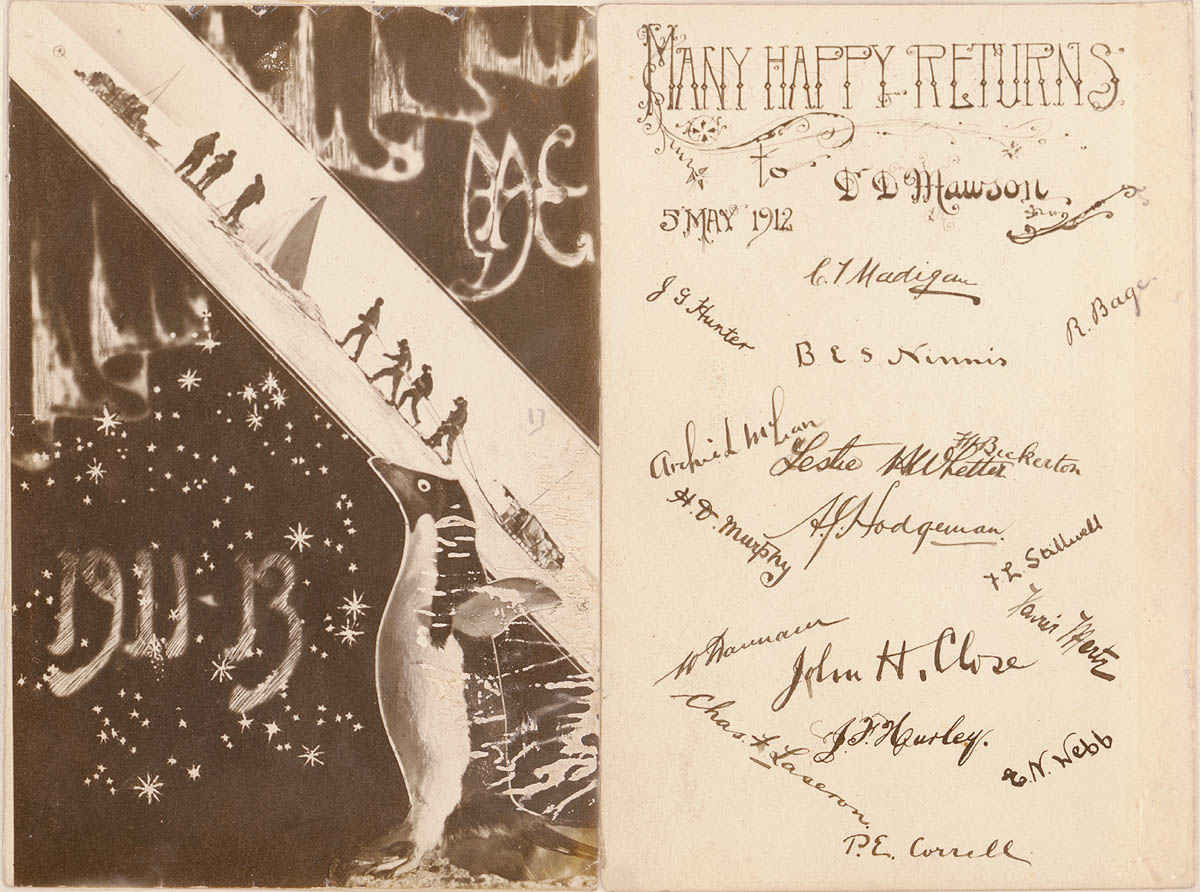 AAE
1911-13
13
MANY HAPPY RETURNS
to
Dr D Mawson
5 MAY 1912
C. T Madigan
J G Hunter
R. Bage.
B E S Ninnis
Archie L McLean
Leslie H Whetter
F H Bickerton
H. D. Murphy
A J Hodgeman.
F. L. Stillwell
Xavier Mertz
W Hannam
John H. Close
Chas. F. Laseron.
J. F. Hurley.
E. N. Webb
P. E. Correll